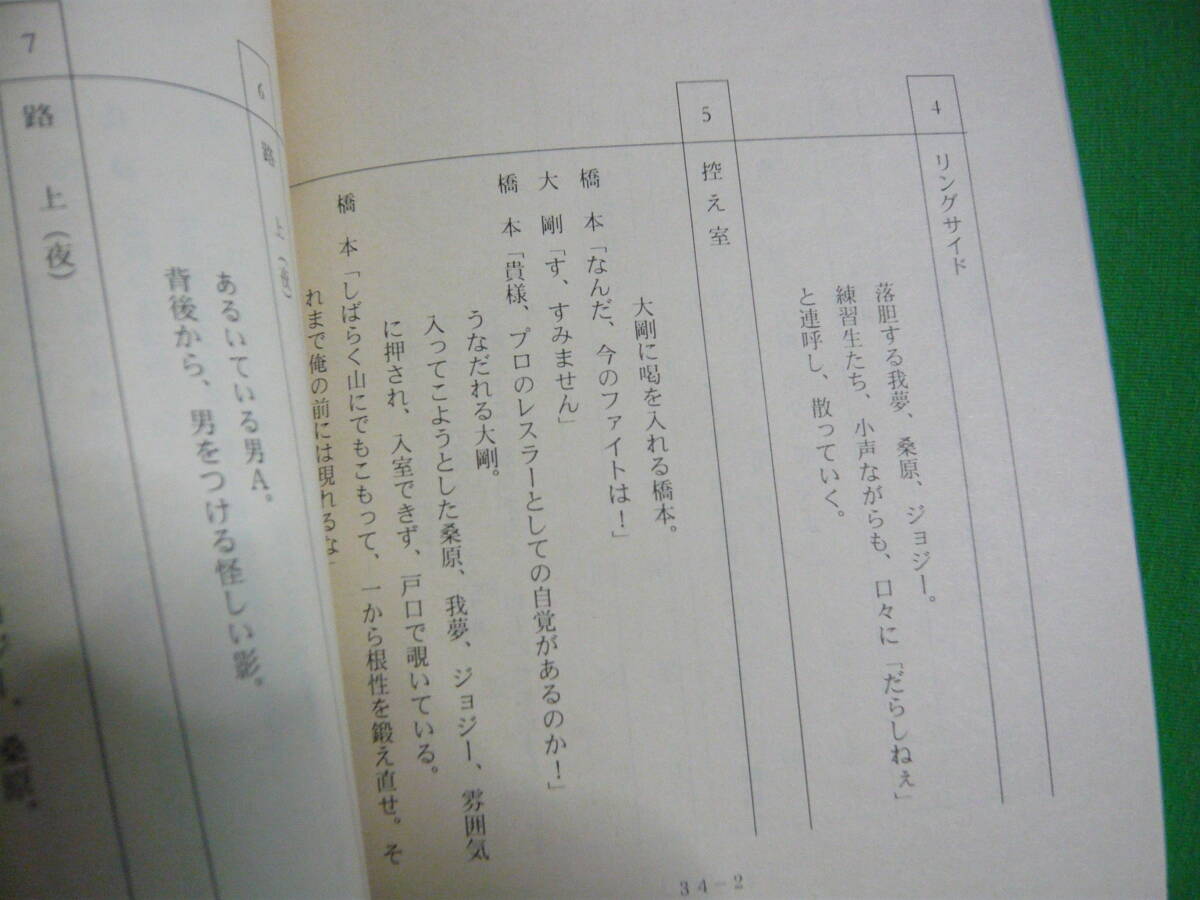 4 リングサイド
落胆する我夢、桑原、ジョジー。
練習生たち、小声ながらも、口々に「だらしねぇ」
と連呼し、散っていく。
5 控え室
大剛に喝を入れる橋本。
橋本「なんだ、今のファイトは！」
大剛「す、すみません」
橋本「貴様、プロのレスラーとしての自覚があるのか！」
うなだれる大剛。
入ってこようとした桑原、我夢、ジョジー、雰囲気
に押され、入室できず、戸口で覗いている。
橋本「しばらく山にでもこもって、一から根性を鍛え直せ。そ
れまで俺の前には現れるな」
34-2
6 路上（夜）
あるいている男A。
背後から、男をつける怪しい影。
7 路上（夜）
桑原。